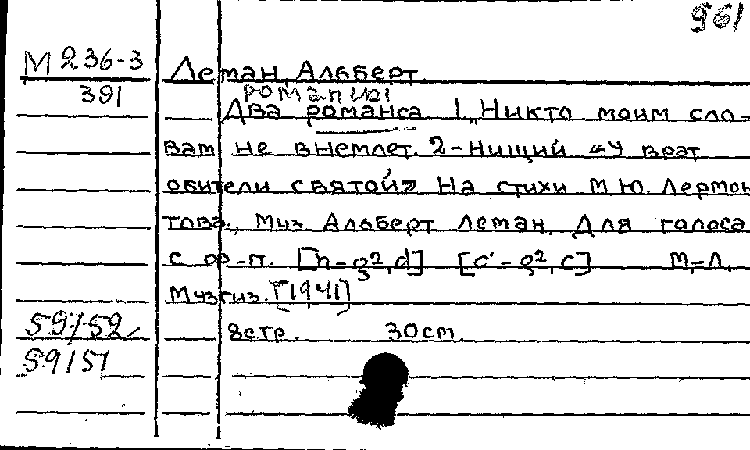 961
М 236-3
391
Леман, Альберт.
романсы
Два романса. 1. „Никто моим сло-
вам не внемлет. 2-Нищий „У врат
обители святой" На стихи М.Ю. Лермон
това., Муз Альберт Леман. Для голоса
с ф-п. [h-g²,d] [c'-g²,c] М,-Л.
Музгиз. [1941]
8стр. 30см
59152
59151